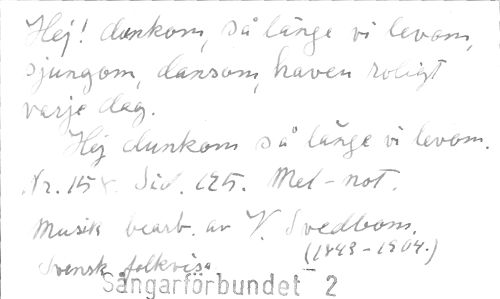 Hej! dunkom, så länge vi levom,
sjungom, dansom, haven roligt
varje dag.
Hej dunkom så länge vi levom.
Nr. 15 Sid. 125. Mel-not.
Musik bearb. av V. Svedbom.
(1843-1904.)
Svensk folkvisa
Sångarförbundet 2